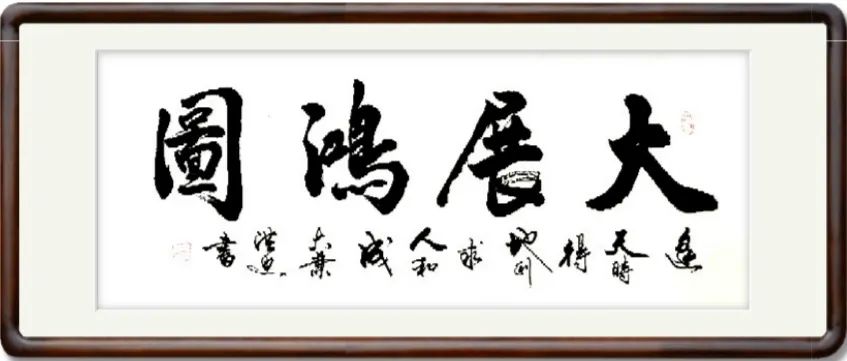 大展鴻圖
天時得地利求人和成大業書